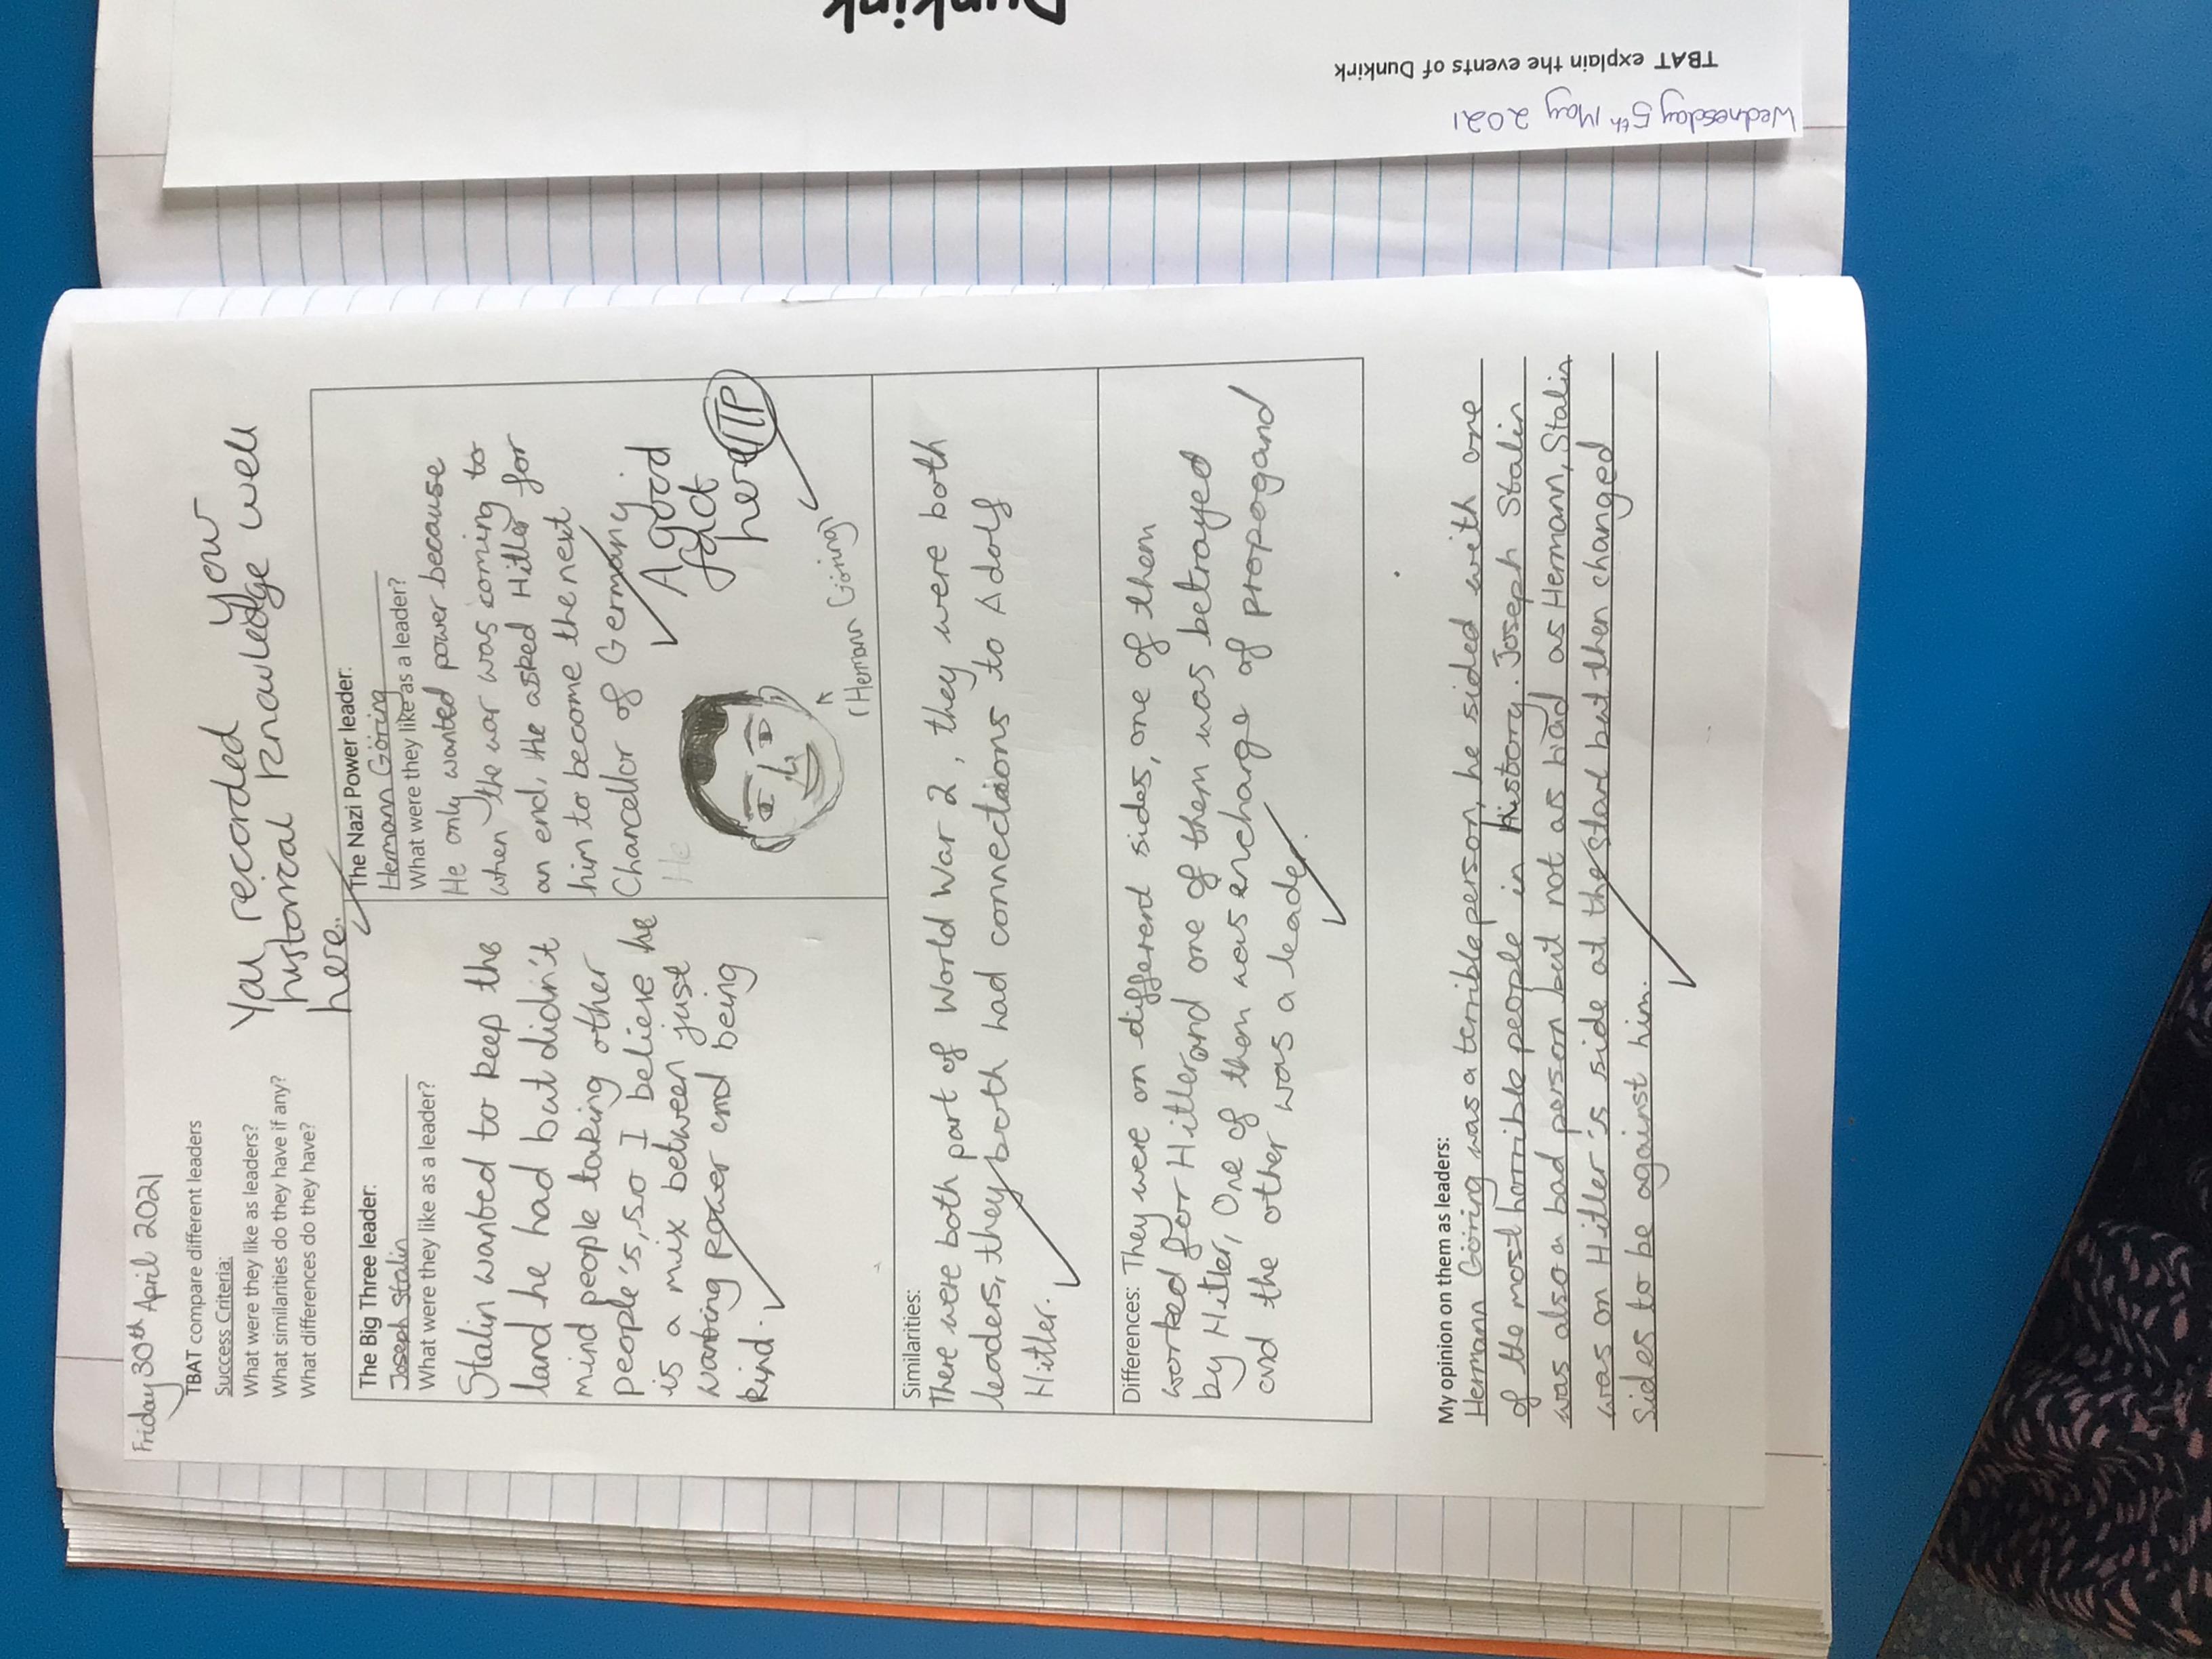 Friday 30th April 2021
TBAT compare different leaders
Success Criteria:
What were they like as leaders?
What similarities do they have if any?
What differences do they have?
You recorded your
historical knowledge well
here.
The Big Three leader:
Joseph Stalin
What were they like as a leader?
Stalin wanted to keep the
land he had but didn't
mind people taking other
people's, so I believe he
is a mix between just
wanting power and being
kind.
The Nazi Power leader:
Hermann Göring
What were they like as a leader?
He only wanted power because
when the war was coming to
an end, He asked Hitler for
him to become the next
Chancellor of Germany.
He
A good
fact
here
TP
(Hermann Göring)
Similarities:
There were both part of World War 2, they were both
leaders, they both had connections to Adolf
Hitler.
Differences: They were on different sides, one of them
worked for Hitler and one of them was betrayed
by Hitler, One of them was encharge of propogand
and the other was a leader.
My opinion on them as leaders:
Hermann Göring was a terrible person, he sided with one
of the most horrible people in history. Joseph Stalin
was also a bad person but not as bad as Hermann, Stalin
was on Hitler's side at the start but then changed
sides to be against him.
Wednesday 5th May 2021
TBAT explain the events of Dunkirk
Dunkirk